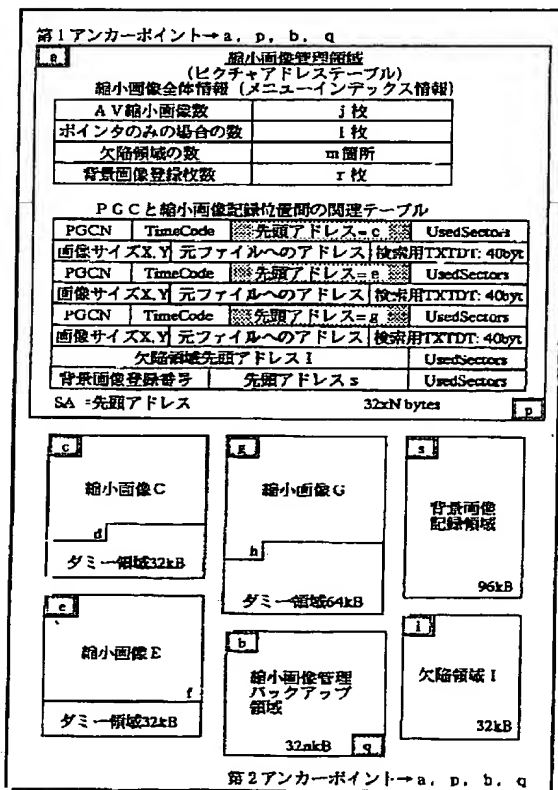 第1アンカーポイント→a, p, b, q
a
縮小画像管理領域
(ピクチャアドレステーブル)
縮小画像全体情報 (メニューインデックス情報)
AV縮小画像数 j枚
ポインタのみの場合の数 l枚
欠陥領域の数 m箇所
背景画像登録枚数 r枚
PGCと縮小画像記録位置間の関連テーブル
PGCN TimeCode 先頭アドレス=c UsedSectors
画像サイズX,Y 元ファイルへのアドレス 検索用TXTDT: 40byt
PGCN TimeCode 先頭アドレス=e UsedSectors
画像サイズX,Y 元ファイルへのアドレス 検索用TXTDT: 40byt
PGCN TimeCode 先頭アドレス=g UsedSectors
画像サイズX,Y 元ファイルへのアドレス 検索用TXTDT: 40byt
欠陥領域先頭アドレス I UsedSectors
背景画像登録番号 先頭アドレス s UsedSectors
SA =先頭アドレス 32xN bytes
p
c
縮小画像C
d
ダミー領域32kB
g
縮小画像G
h
ダミー領域64kB
s
背景画像
記録領域
96kB
e
縮小画像E
f
ダミー領域32kB
b
縮小画像管理
バックアップ
領域
32nkB
q
i
欠陥領域 I
32kB
第2アンカーポイント→a, p, b, q